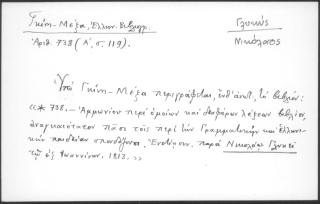 Γκίνη-Μέξα, Ἑλλην. Βιβλιογρ.
Γλυκὺς
Ἀριθ. 738 (Α', σ. 119).
Νικόλαος
Ὑπὸ Γκίνη-Μέξα περιγράφεται, ὑπ' ἀριθ. τὸ βιβλίον:
«* 738.- Ἀμμωνίου περὶ ὁμοίων καὶ διαφόρων λέξεων βιβλίον
ἀναγκαιότατον πᾶσι τοῖς περὶ τὴν Γραμματικὴν καὶ Ἑλληνι-
κὴν παιδείαν σπουδάζουσι. Ἐνετίησιν, παρὰ Νικολάῳ Γλυκεῖ
τῷ ἐξ Ἰωαννίνων, 1813.»